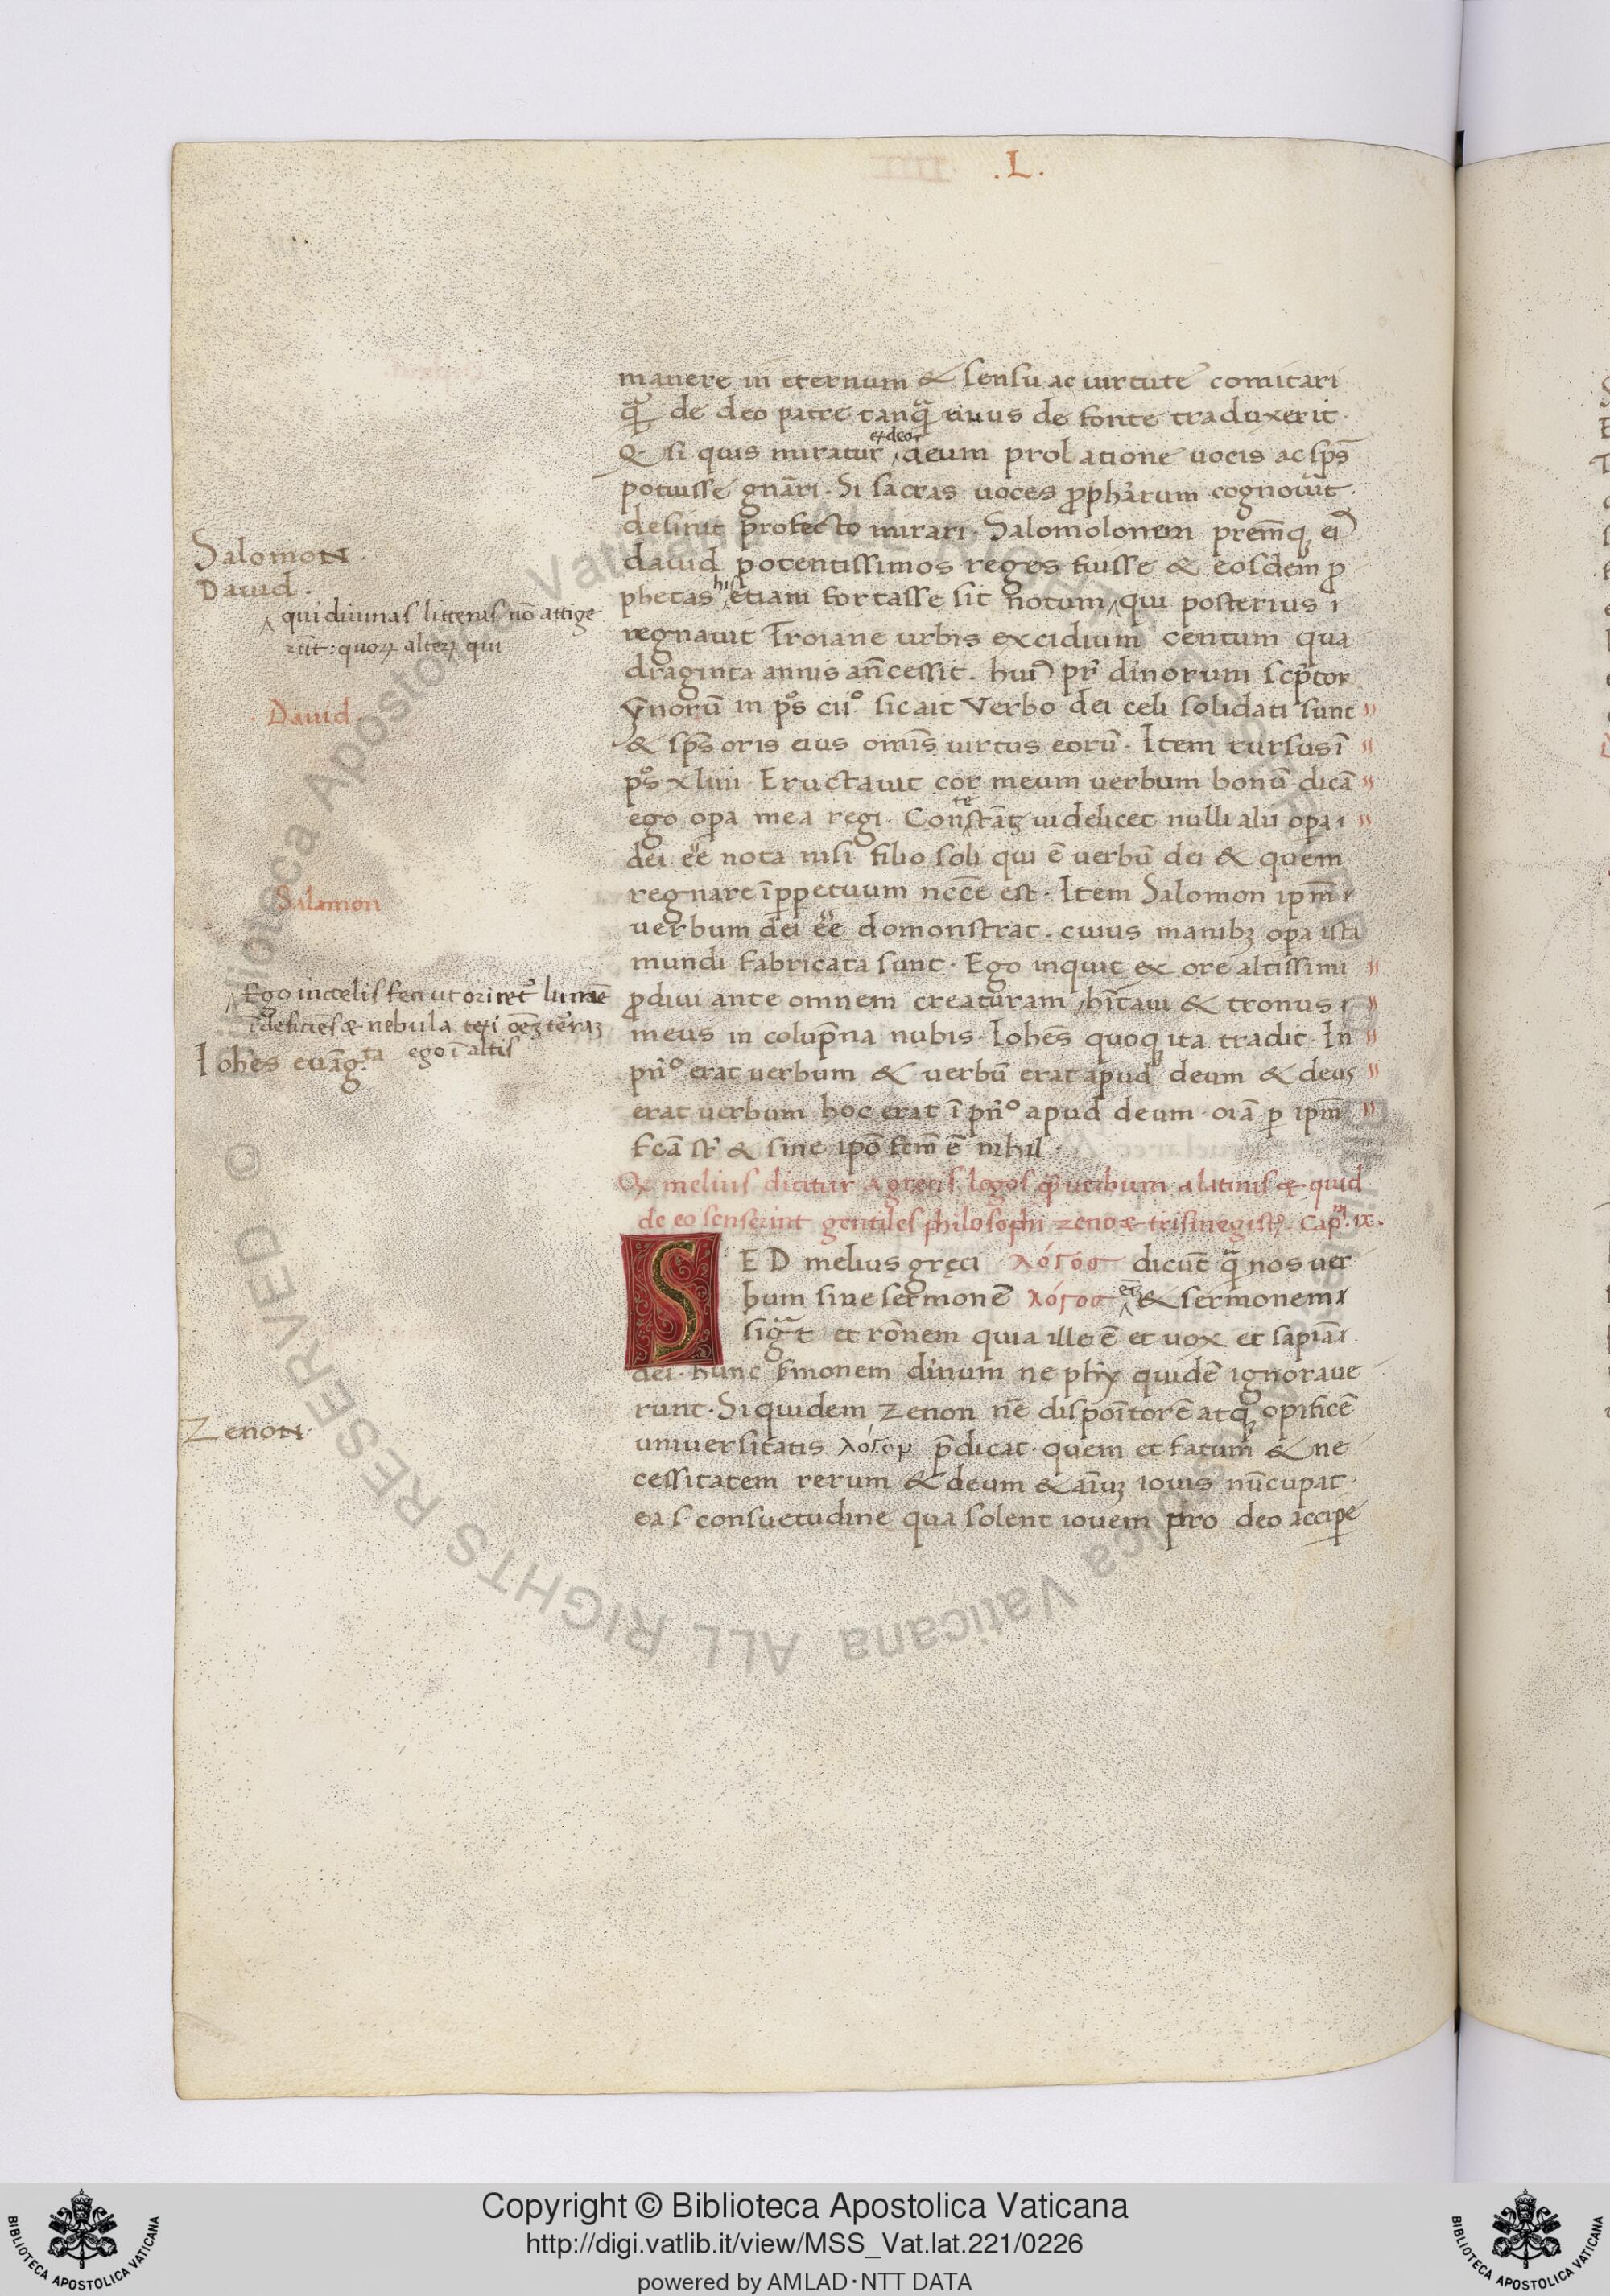 .L.
manere in eternum & sensu ac uirtute comitari
qꝫ de deo patre tanq̃ riuus de fonte traduxerit.
Q si quis miratur ex deo deum prolatione uocis ac sp̃s
potuisse gnãri. Si sacras uoces ꝓphãrum cognouit.
desinit profecto mirari. Salomolonem premq̃ ei⁹
dauid potentissimos reges fuisse & eosdem ꝓ
phetas hist etiam fortasse sit notum, qui posterius
regnauit Troiane urbis excidium centum qua
draginta annis añcessit. hui⁹ pr̃ diuinorum scp̃tor
ỹnorũ in ps̊ cii⁰. sic ait Verbo dei celi solidati sunt
& sp̃s oris eius omĩs uirtus eorũ. Item rursus ĩ
ps̊ xliiii. Eructauit cor meum uerbum bonũ dicã
ego opa mea regi. Contestãs uidelicet nulli alii opa
dei ẽe nota nisi filio soli qui ẽ uerbũ dei & quem
regnare ĩ ꝑpetuum nccẽ est. Item Salomon ipm̃
uerbum dei ẽe domonstrat. cuius manibꝫ opa isti
mundi fabricata sunt. Ego inquit ex ore altissimi
ꝓdiui ante omnem creaturam, hĩtaui & tronus
meus in colupna nubis. Iohẽs quoq̃ ita tradit. In
pñ⁰ erat uerbum & uerbũ erat apud deum & deus
erat uerbum hoc erat ĩ pñ⁰ apud deum. oĩa ꝑ ipm̃
fcã st̃ & sine ipõ fcm̃ ẽ nihil.
Q melius dicitur a grecis logos q̃ uerbum a latinis & quid
de eo senserint gentiles philosophi zeno & trismegist⁹. Capm̃. ix.
SED melius gręci λόγος dicũt q̃ nos uer
bum siue sermonẽ λόγος etꝫ & sermonem
sig̃t et rõnem quia ille ẽ et uox et sapiã
dei. hunc s̃monem diuinum ne phỹ quidẽ ignoraue
runt. Siquidem zenon nẽ dispoĩtorẽ atq̃ opificẽ
uniuersitatis λόγον p̃dicat. quem et fatum & ne
cessitatem rerum & deum & aĩuꝫ iouis nũcupat.
ea s. consuetudine qua solent iouem pro deo accipe
Salomon.
Dauid.
qui diuinas litteras nõ attige
rũt: quoꝝ alteꝝ qui
.Dauid.
Salamon
Ego in cœlis feci ut oriret⁹ lumẽ
ĩdeficiẽs & nebula texi oẽꝫ terrã
ego ĩ altis
Iohẽs euãg.ta
Zenon.
Copyright © Biblioteca Apostolica Vaticana
http://digi.vatlib.it/view/MSS_Vat.lat.221/0226
powered by AMLAD·NTT DATA
BIBLIOTECA APOSTOLICA VATICANA
BIBLIOTECA APOSTOLICA VATICANA
Biblioteca Apostolica Vaticana ALL RIGHTS RESERVED ©